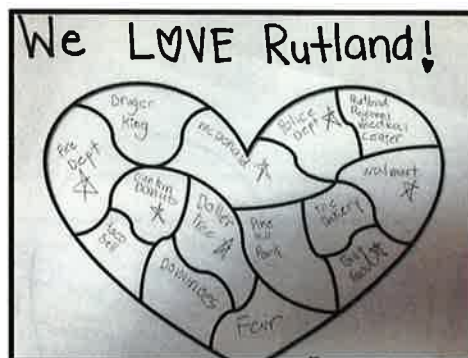 We LOVE Rutland!
Bruger
King
mcDonald
Police
Dept
Rutland
Regional
Medical
Center
Fire
Dept
Walmart
Dunkin
Donuts
Doller
Tree
Pine
Hill
Park
The
Bakery
taco
Bell
Dominoes
Fair